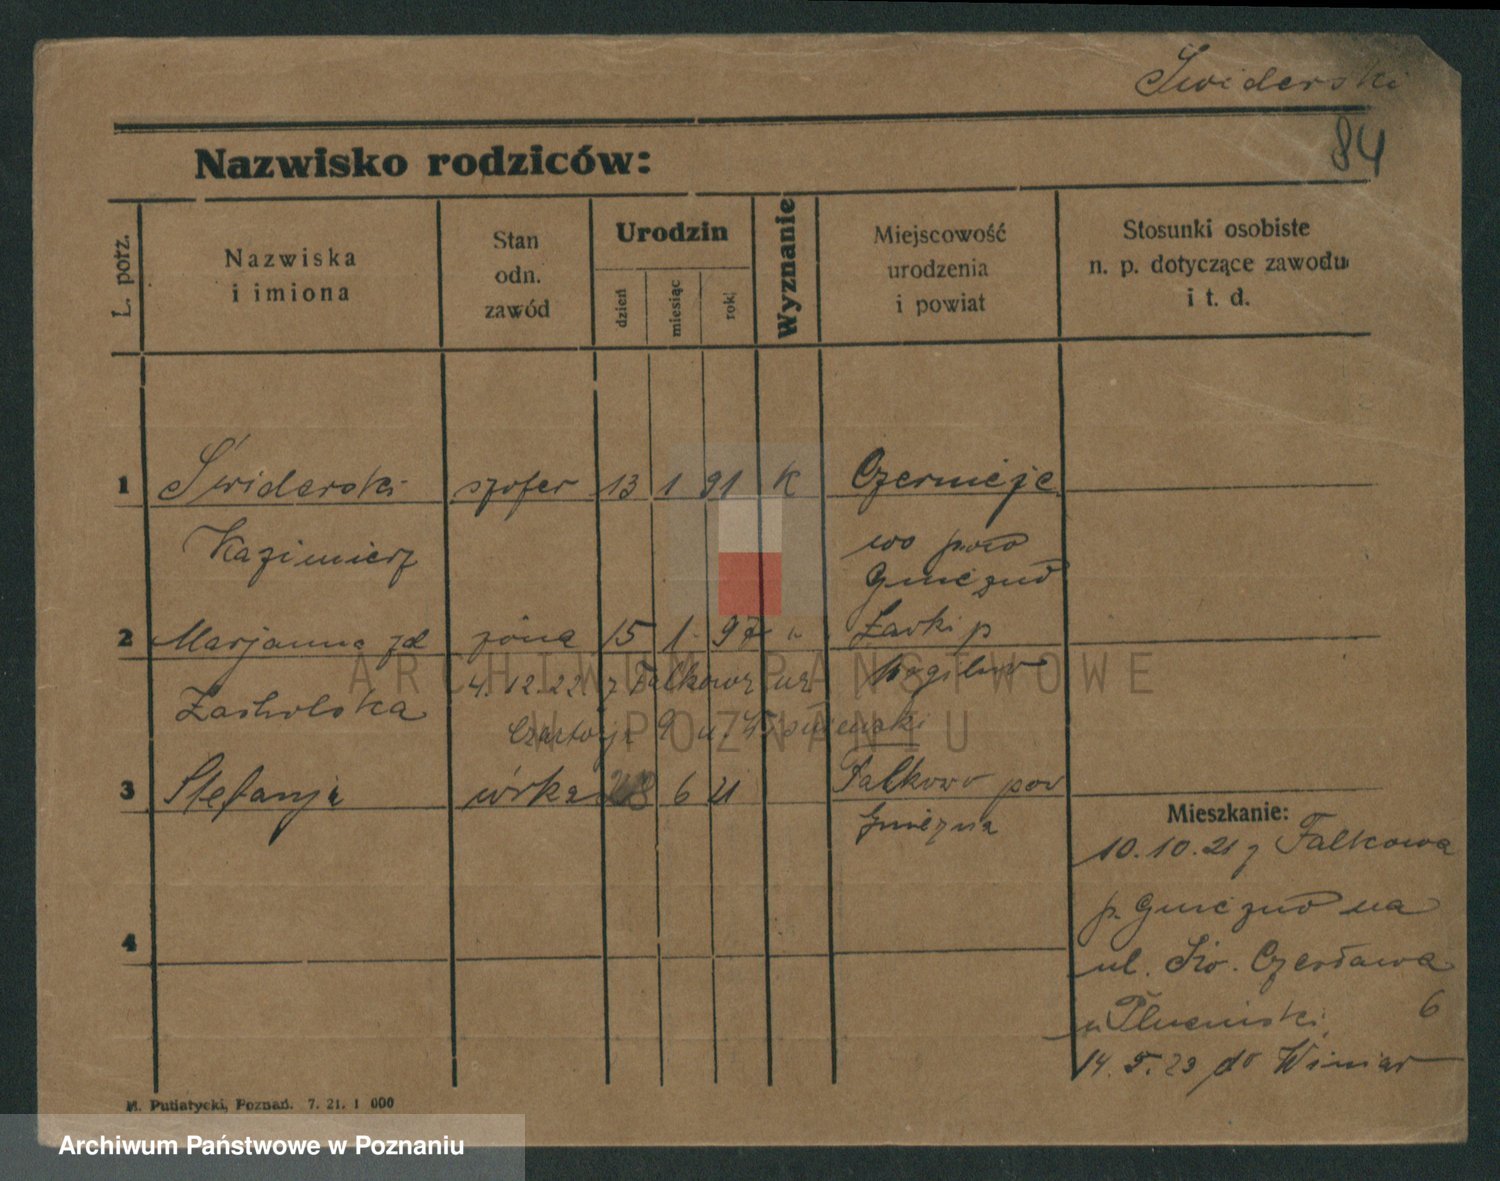 Świderski
84
Nazwisko rodziców:
L. porz.
Nazwiska
i imiona
Stan
odn.
zawód
Urodzin
dzień
miesiąc
rok
Wyznanie
Miejscowość
urodzenia
i powiat
Stosunki osobiste
n. p. dotyczące zawodu
i t. d.
1 Świderski szofer 13 1 91 K Czernieje
Kazimierz wo pow
Gniezno
2 Marjanna zd żona 15 1. 97 " p
4.12.22 z Falkowa
9 u.
3 Stefanja córka 28 6 21 Falkowo pow
Gniezna
Mieszkanie:
10.10.21 z Falkowa
p. Gniezno na
ul. Św. Czesława
6
u Plucinski
14.5.23 do Winiar
4
M. Putiatycki, Poznań. 7. 21. 1 000
ARCHIWUM PAŃSTWOWE
W POZNANIU
Archiwum Państwowe w Poznaniu